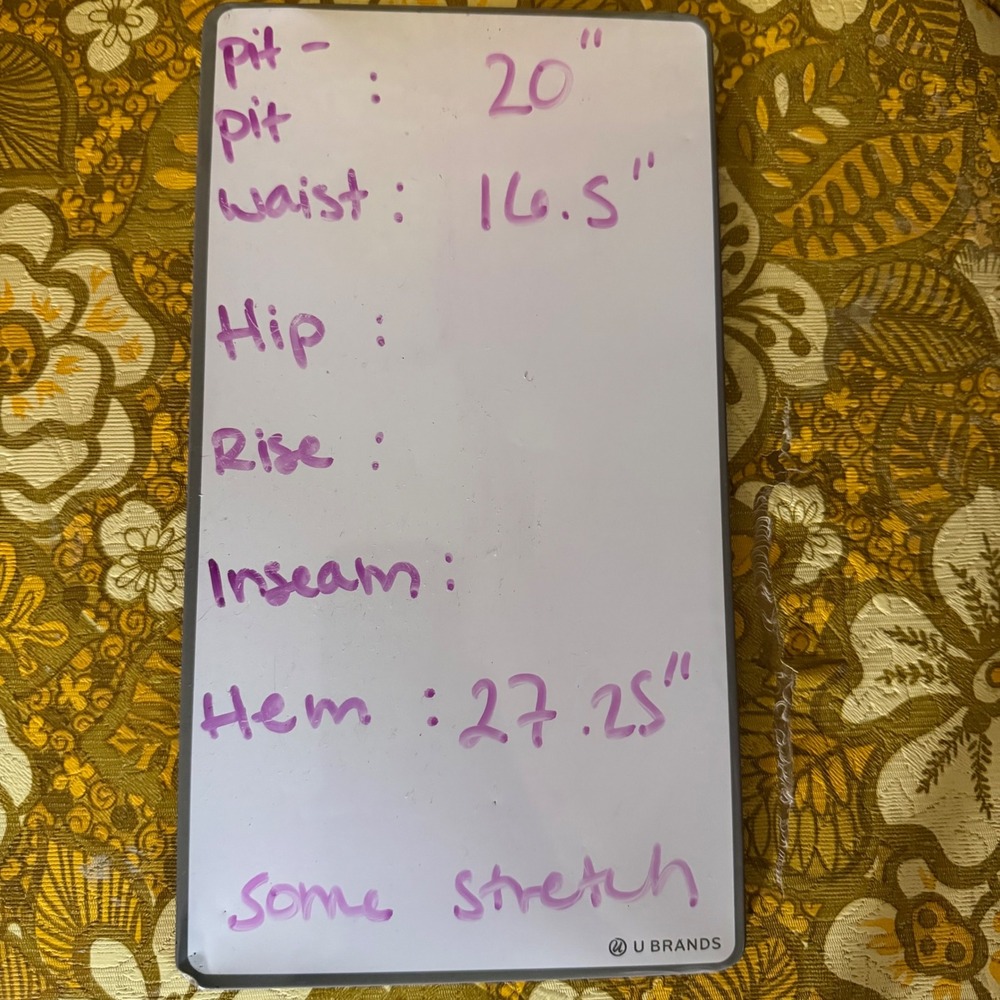 pit -
pit : 20"
waist : 16.5"
Hip :
Rise :
Inseam :
Hem : 27.25"
some stretch
U BRANDS